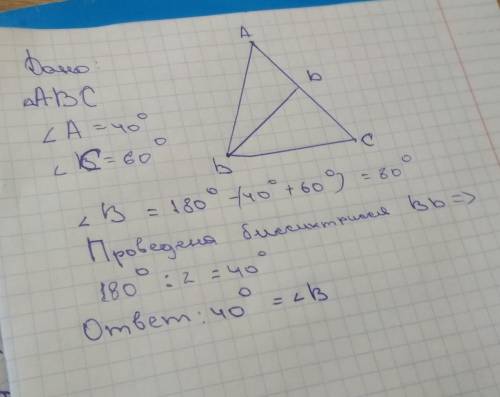 Дано:
△ABC
∠A = 40°
∠C = 60°
A
D
B
C
∠B = 180° - (40° + 60°) = 80°
Проведена биссиктрисса BD =>
180° : 2 = 40°
Ответ: 40° = ∠B